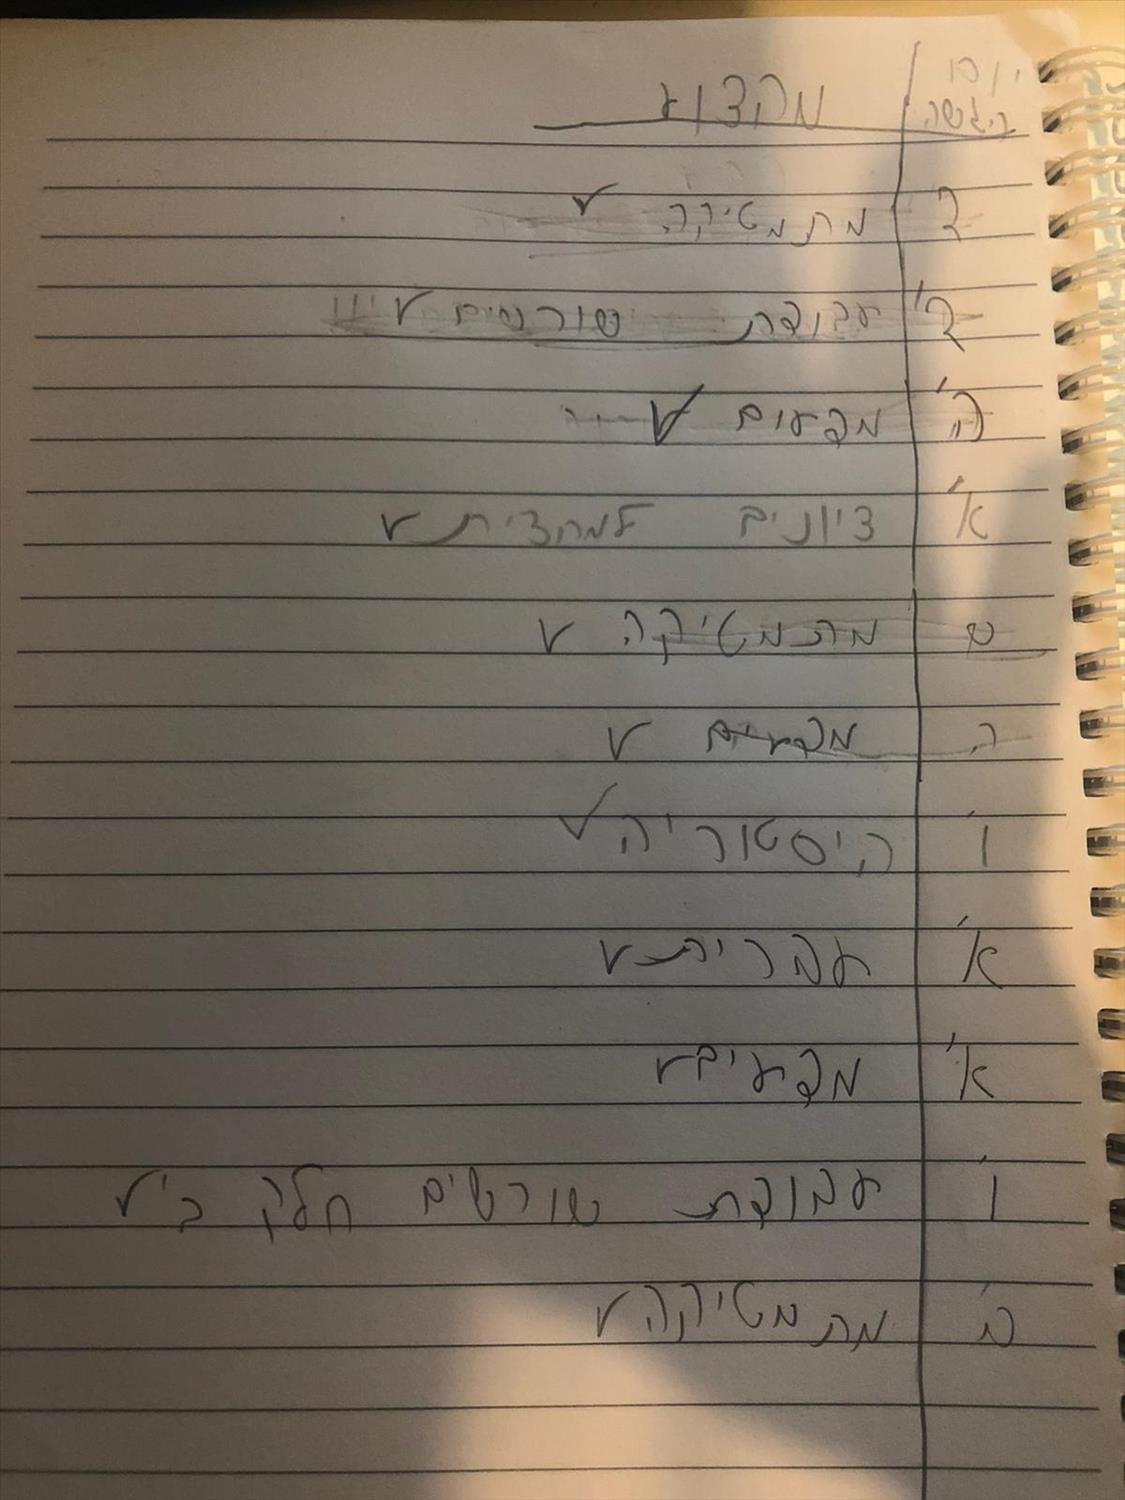 יום הגשה מקצוע
ד מתמטיקה ✓
ד' עבודת שורשים ✓
ה' מדעים ✓
א' ציונים למחצית ✓
מתמטיקה ✓
ה מדעים ✓
ו' היסטוריה ✓
א' עברית ✓
א' מדעים ✓
ו' עבודת שורשים חלק ב' ✓
מתמטיקה ✓